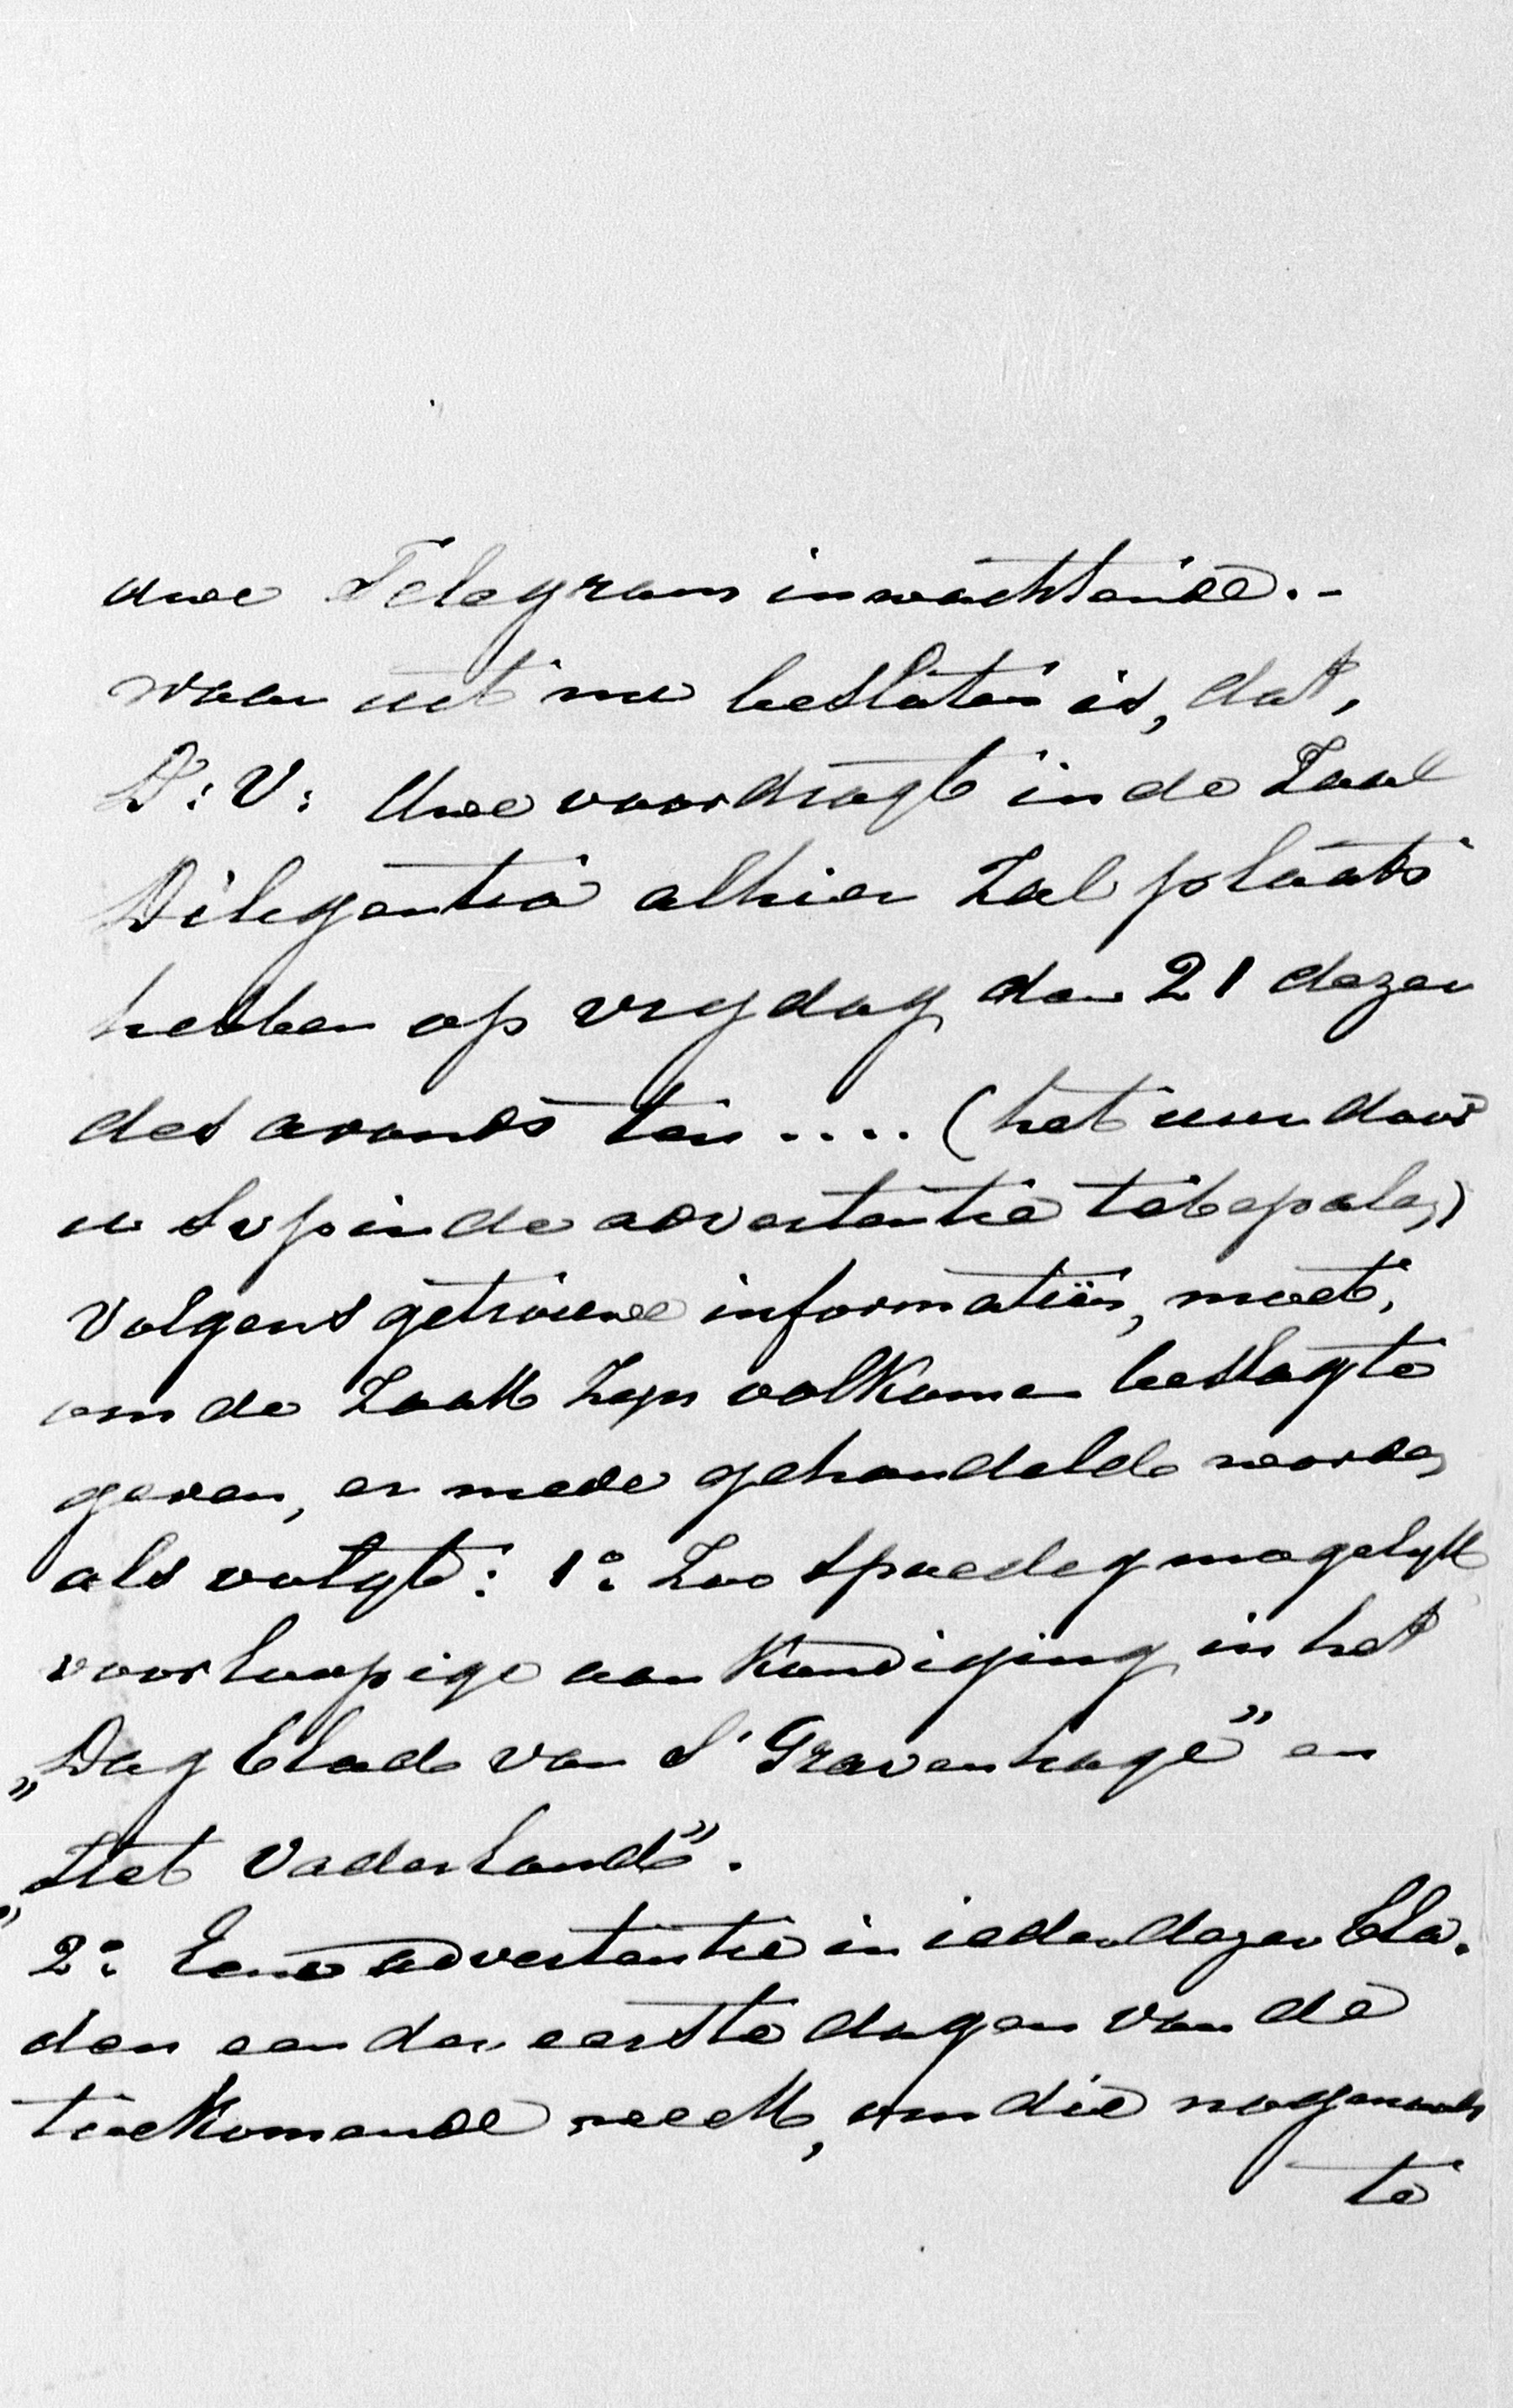 uwe Telegram inwachtende.-
waar uit nu besloten is, dat,
D: V: Uwe voordragt in de Zaal
Diligentia alhier zal plaats
hebben op vrydag den 21 dezer
des avonds ten .... (het uur door
u svp in de advertentie te bepalen)
Volgens getrouwe informatiën, moet,
om de Zaak zyn volkomen beslag te
geven, er mede gehandeld worden
als volgt: 1º. Zoo spoedig mogelyk
voorloopige aankondiging in het
„Dagblad van S'Gravenhage” en
„Het Vaderland”.
2º. Eene advertentie in ieder dezer bla-
den een der eerste dagen van de
toekomende week, om die nogmaals
te